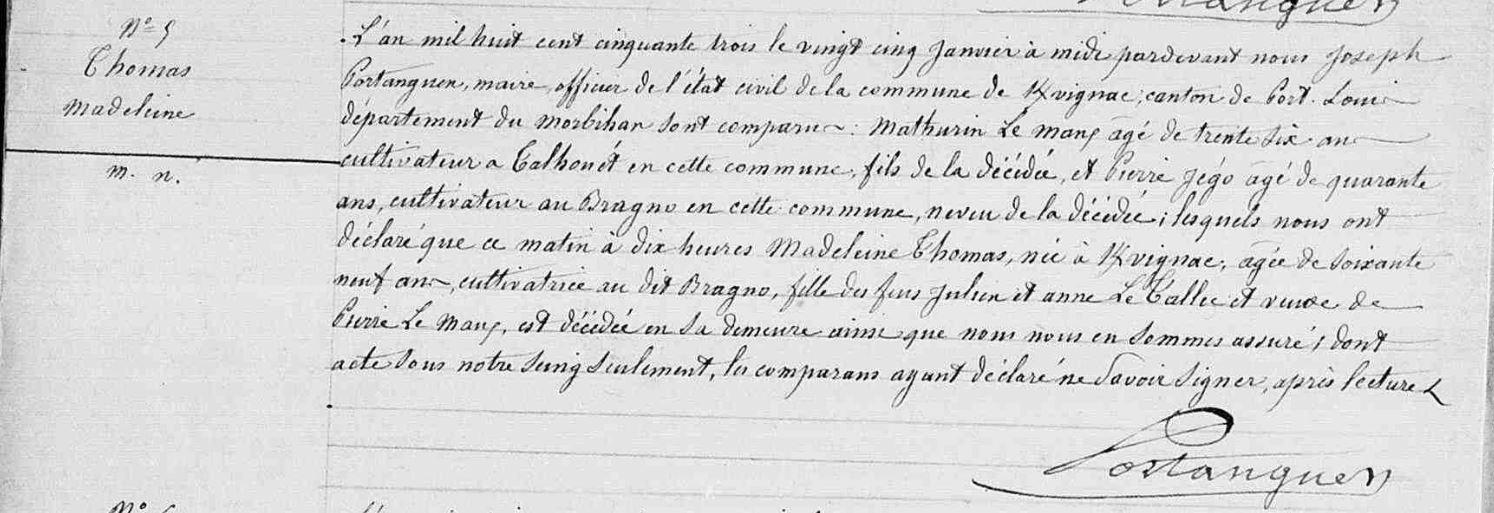 Nº 5
Thomas
Madeleine
m. n.
L'an mil huit cent cinquante trois le vingt cinq janvier à midi pardevant nous Joseph
Portanguen, maire, officier de l'état civil de la commune de Kvignac, canton de Port-Louis
département du morbihan sont comparus: Mathurin Le Mang agé de trente six ans
cultivateur a Talhouët en cette commune, fils de la décédée, et Pierre Jégo agé de quarante
ans, cultivateur au Bragno en cette commune, neveu de la décédée; lesquels nous ont
déclaré que ce matin à dix heures Madeleine Thomas, née à Kvignac, agée de soixante
neuf ans, cultivatrice au dit Bragno, fille des feus Julien et anne Le Tallec et veuve de
Pierre Le Mang, est décédée en sa demeure ainsi que nous nous en sommes assuré; dont
acte sous notre seing seulement, les comparans ayant déclaré ne savoir signer, après lecture
Portanguen